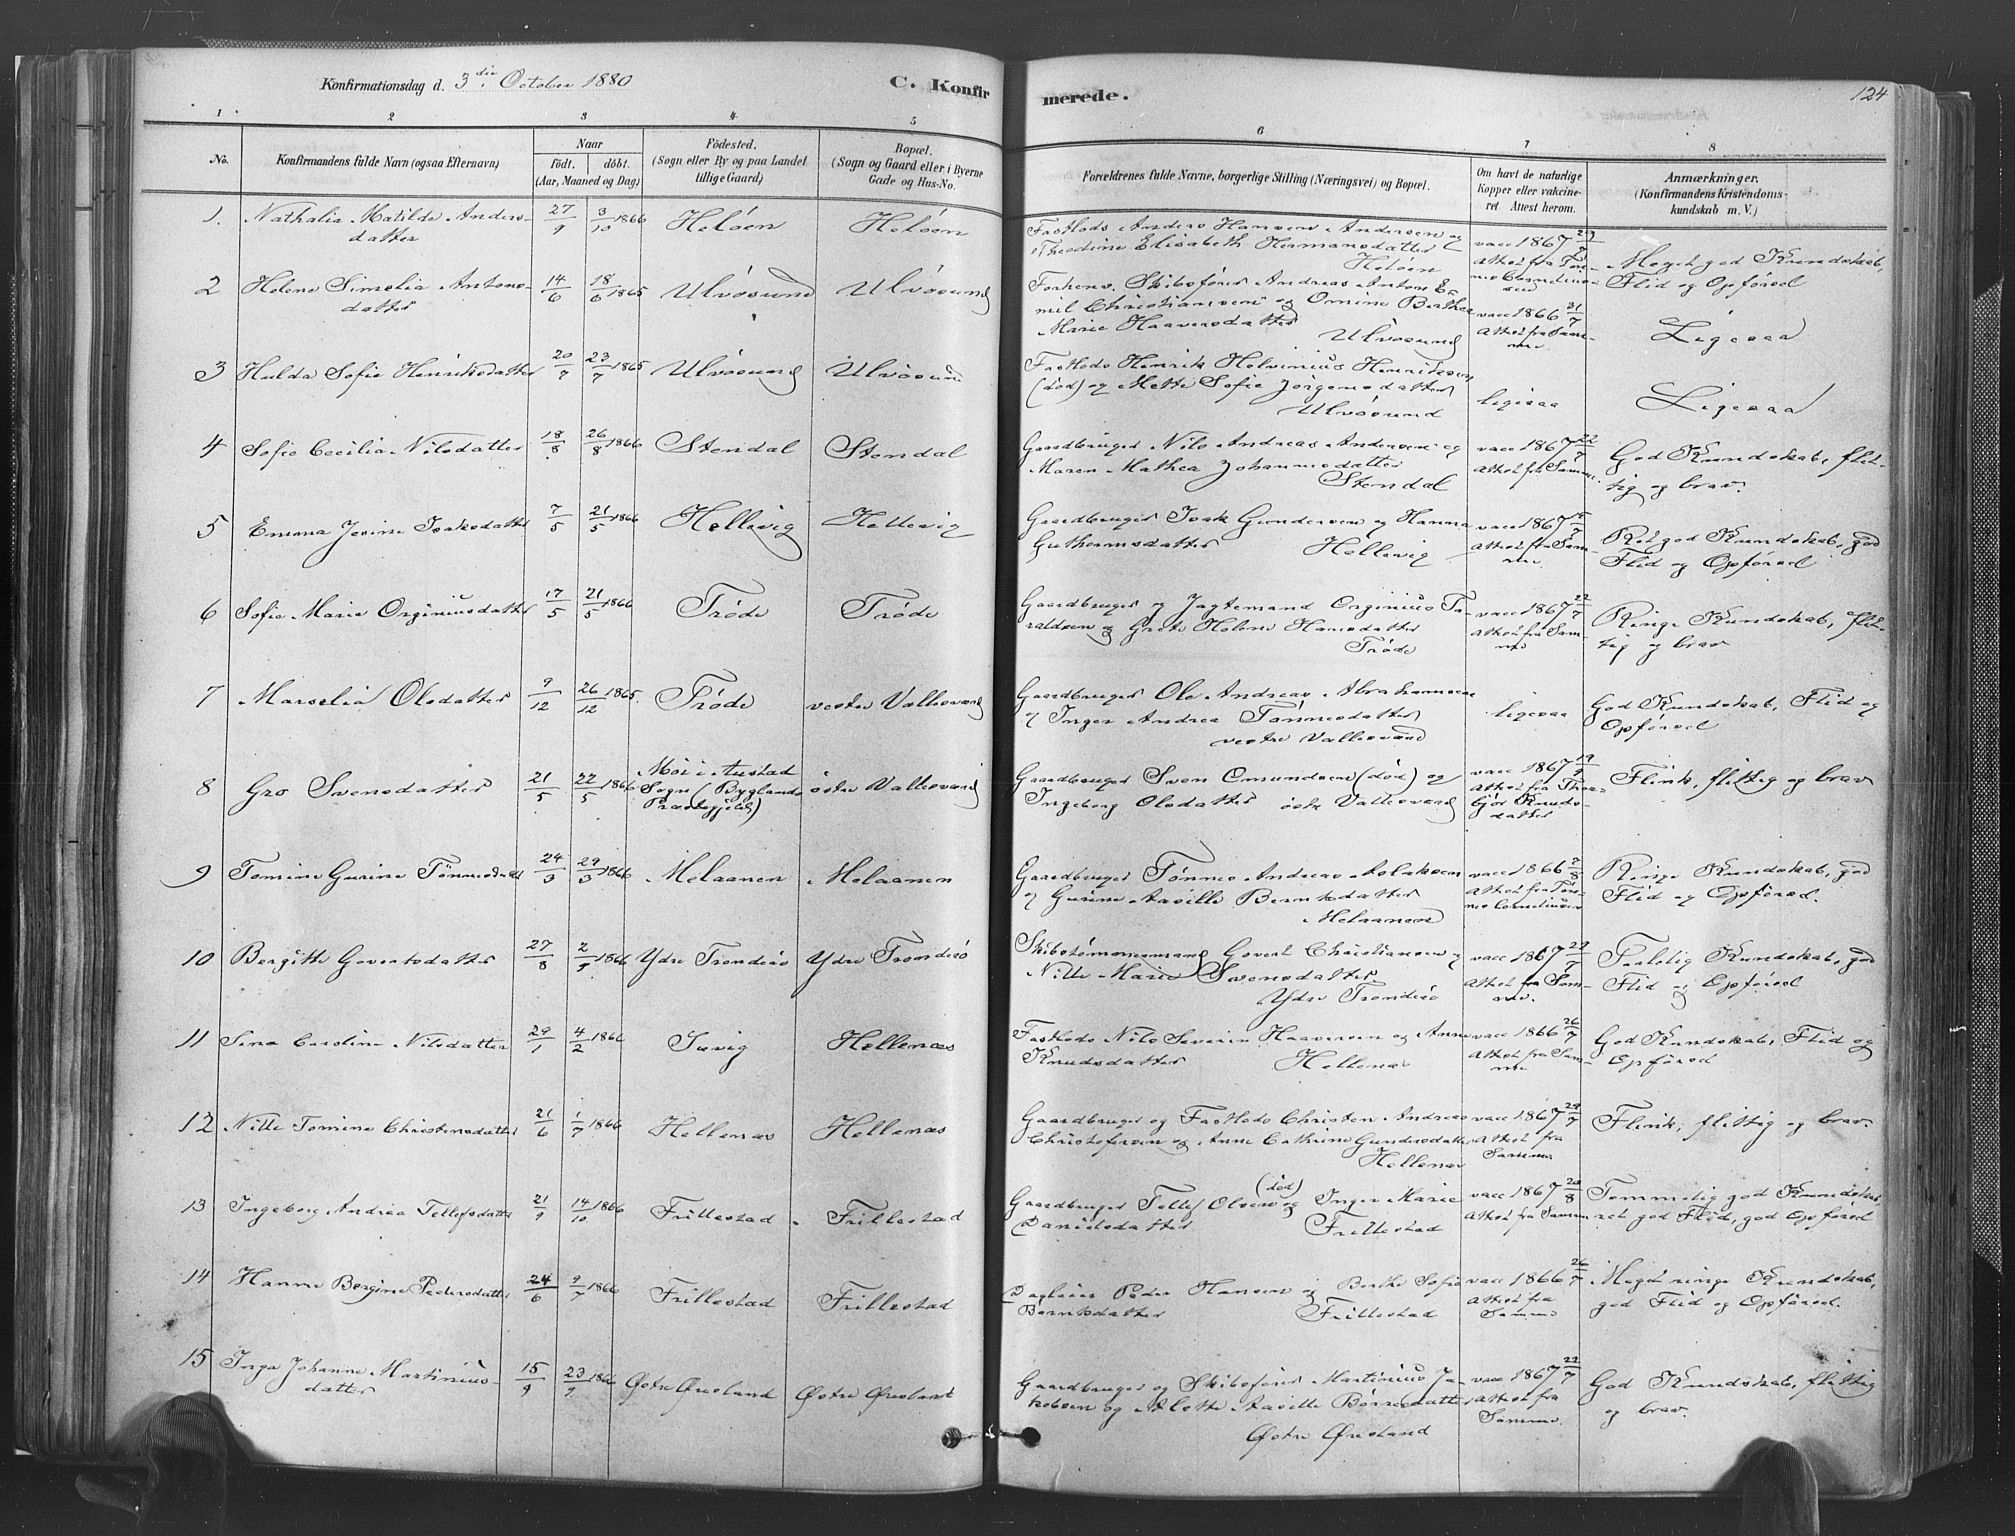 Konfirmationsdag d. 3die October 1880
C. Konfirmerede.
124
1 2 3 4 5 6 7 8
No.
Konfirmandens fulde Navn (ogsaa Efternavn)
Naar
Födt. döbt.
(Aar, Maaned og Dag)
Födested.
(Sogn eller By og paa Landet
tillige Gaard)
Bopæl.
(Sogn og Gaard eller i Byerne
Gade og Hus-No.
Forældrenes fulde Navne, borgerlige Stilling (Næringsvei) og Bopæl.
Om havt de naturlige
Kopper eller vakcine-
ret Attest herom.
Anmærkninger.
(Konfirmandens Kristendoms-
kundskab m. V.)
1. Nathalia Matilde Anders-
datter
27/9 3/10 1866 Helöen Helöen
Fastlods Anders Hansen Andersen og
Theodine Elisabeth Hermansdatter
Helöen
vacc 1867
Attest fra Tön-
nes Cornelius-
sen
Meget god Kundskab,
Flid og Opförsel
2 Helene Simelia Antons-
datter
14/6 18/6 1865 Ulvösund Ulvösund
Forhenv. Skibsförer Andreas Anton E-
mil Christiansen og Omine Berthea
Marie Haaversdatter
Ulvösund
vacc 1866 21/7
Attest fra Sam-
me.
Ligesaa
3 Hulda Sofie Henriksdatter 20/7 23/7 1865 Ulvösund Ulvösund
Fastlods Henrik Helvinius Henriksen
(död) og Mette Sofie Jörgensdatter
Ulvösund
Ligesaa
Ligesaa
4 Sofie Cecilia Nilsdatter 18/8 26/8 1866 Stendal Stendal
Gaardbruger Nils Andreas Andersen og
Maren Mathea Johannesdatter
Stendal
vacc 1867 22/7
Attest fra Samme.
God Kundskab, flit-
tig og brav.
5 Emma Jesine Isaksdatter 7/5 21/5 1866 Hellevig Hellevig
Gaardbruger Isak Gundersen og Hanna
Guthormsdatter Hellevig
vacc 1867
Attest fra Sam-
me
Ret god Kundskab, god
Flid og Opförsel
6 Sofie Marie Orginiusdatter 17/5 21/5 1866 Tröde Tröde
Gaardbruger og Jagtemand Orginius Ta-
raldsen og Grete Helene Hansdatter
Tröde
vacc 1867 22/7
Attest fra Sam-
me
Ringe Kundskab, flit-
tig og brav
7 Marselia Olsdatter 9/12 26/12 1865. Tröde vestre Vallesværd
Gaardbruger Ole Andreas Abrahamsen
og Inger Andrea Tönnesdatter
vestre Vallesværd
Ligesaa
God Kundskab, Flid og
Opförsel
8 Gro Svensdatter 21/5 22/5 1866
Moi i Austad
Sogn (Byglands
Præstegjeld)
östre Vallesværd
Gaardbruger Sven Omundsen (död) og
Ingeborg Olsdatter östre Vallesværd
vacc 1867 19/9
Attest fra Thor-
björ Knuds-
datter
Flink, flittig og brav
9 Tomine Gurine Tönnesdatter 24/3 29/3 1866 Melaanen Melaanen
Gaardbruger Tönnes Andreas Aslaksen
og Gurine Aasille Berntsdatter
Melaanen
vacc 1866 7/8
Attest fra Tön-
nes Corneliusen
Ringe Kundskab, god
Flid og Opförsel.
10 Bergitte Govertsdatter 27/8 2/9 1866 Ydre Trondsö Ydre Trondsö
Skibstömmermand Govert Christiansen og
Nille Marie Svensdatter
Ydre Trondsö
vacc 1867 29/7
Attest fra Sam-
me.
Taalelig Kundskab, god
Flid og Opförsel
11 Sina Caroline Nilsdatter 29/1 4/2 1866 Isvig Hellenæs
Fastlods Nils Severin Haaversen og Anne
Knudsdatter Hellenæs
vacc 1866 26/7
Attest fra Sam-
me
God Kundskab, Flid og
Opförsel
12 Nille Tomine Christensdatter 21/6 1/7 1866 Hellenæs Hellenæs
Gaardbruger og Fastlods Christen Andreas
Christofersen og Anne Cathrine Gundersdatter
Hellenæs
vacc 1867 29/7
Attest fra
Samme
Flink, flittig og brav.
13 Ingeborg Andrea Tellefsdatter 21/9 14/10 1866 Frillestad Frillestad
Gaardbruger Tellef Olsen (död) og Inger Marie
Danielsdatter Frillestad
vacc 1867 20/8
Attest fra Samme
Temmelig god Kundskab,
ret god Flid, god Opförsel
14 Hanne Bergine Pedersdatter 24/6 9/7 1866 Frillestad Frillestad
Dagleier Peder Hansen og Berthe Sofie
Berntsdatter Frillestad
vacc 1866 26/7
Attest fra
Samme
Meget ringe Kundskab,
god Flid og Opförsel.
15 Inga Johanne Martinius-
datter
15/9 23/9 1866 Østre Øresland Østre Øresland
Gaardbruger og Skibsförer Martinius Ja-
kobsen og Alette Aasille Börresdatter
Østre Øresland
vacc 1867 22/7
Attest fra
Samme.
God Kundskab, flittig
og brav.